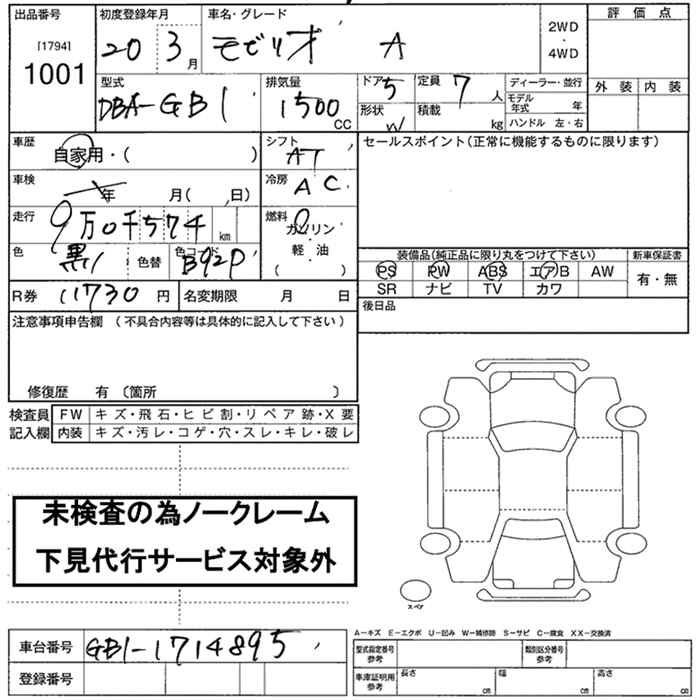 出品番号 初度登録年月 車名・グレード 評価点
[1794] 1001 20 3月 モビリオ A 2WD・4WD
外装 内装
型式 排気量 ドア 定員 ディーラー・並行
DBA-GB1 1500CC 5 7人 モデル年式 年
形状 W 積載 kg ハンドル 左・右
車歴 シフト セールスポイント(正常に機能するものに限ります)
自家用・( ) AT
車検 年 月( 、日) 冷房 AC
走行 9万0千574km 燃料 ガソリン・軽・油 ( )
色 黒 色替 色コード B92P
装備品(純正品に限り丸をつけて下さい) 新車保証書
PS PW ABS エアB AW 有・無
SR ナビ TV カワ
R券 11730円 名変期限 月 日 後日品
注意事項申告欄 (不具合内容等は具体的に記入して下さい)
修復歴 有 〔箇所 〕
検査員 FW キズ・飛石・ヒビ割・リペア跡・X要
記入欄 内装 キズ・汚レ・コゲ・穴・スレ・キレ・破レ
未検査の為ノークレーム
下見代行サービス対象外
スペア
A−キズ E−エクボ U−凹み W−補修跡 S−サビ C−腐食 XX−交換済
車台番号 GB1-1714895 型式指定番号 参考 類別区分番号 参考
登録番号 車庫証明用 参考 長さ cm 幅 cm 高さ cm